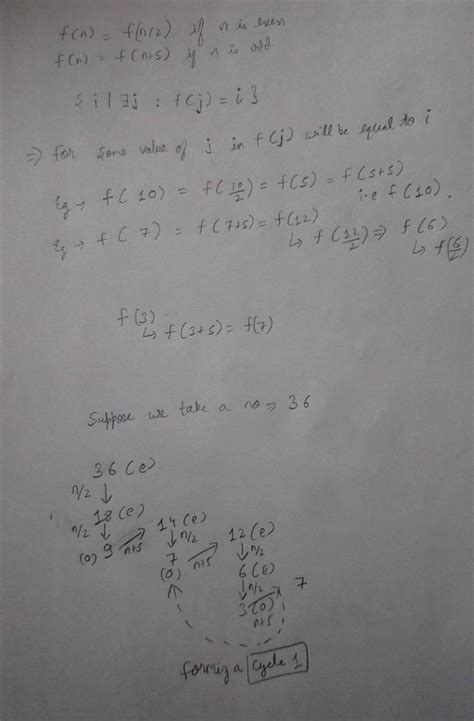 f(n) = f(n/2) if n is even
f(n) = f(n+5) if n is odd
{ i | ∃j : f(j) = i }
⇒ for some value of j in f(j) will be equal to i
Eg → f(10) = f(10/2) = f(5) = f(5+5)
i.e f(10).
Eg → f(7) = f(7+5) = f(12)
↳ f(12/2) ⇒ f(6)
↳ f(6/2)
f(3)
↳ f(3+5) = f(7)
Suppose we take a no ⇒ 36
36 (e)
n/2 ↓
18 (e) 14 (e) 12 (e)
n/2 ↓ n+5 ↓ n/2 n+5 ↓ n/2
(o) 9 7 (o) 6 (e)
↓ n/2
3 (o) n+5 7
forming a Cycle 1